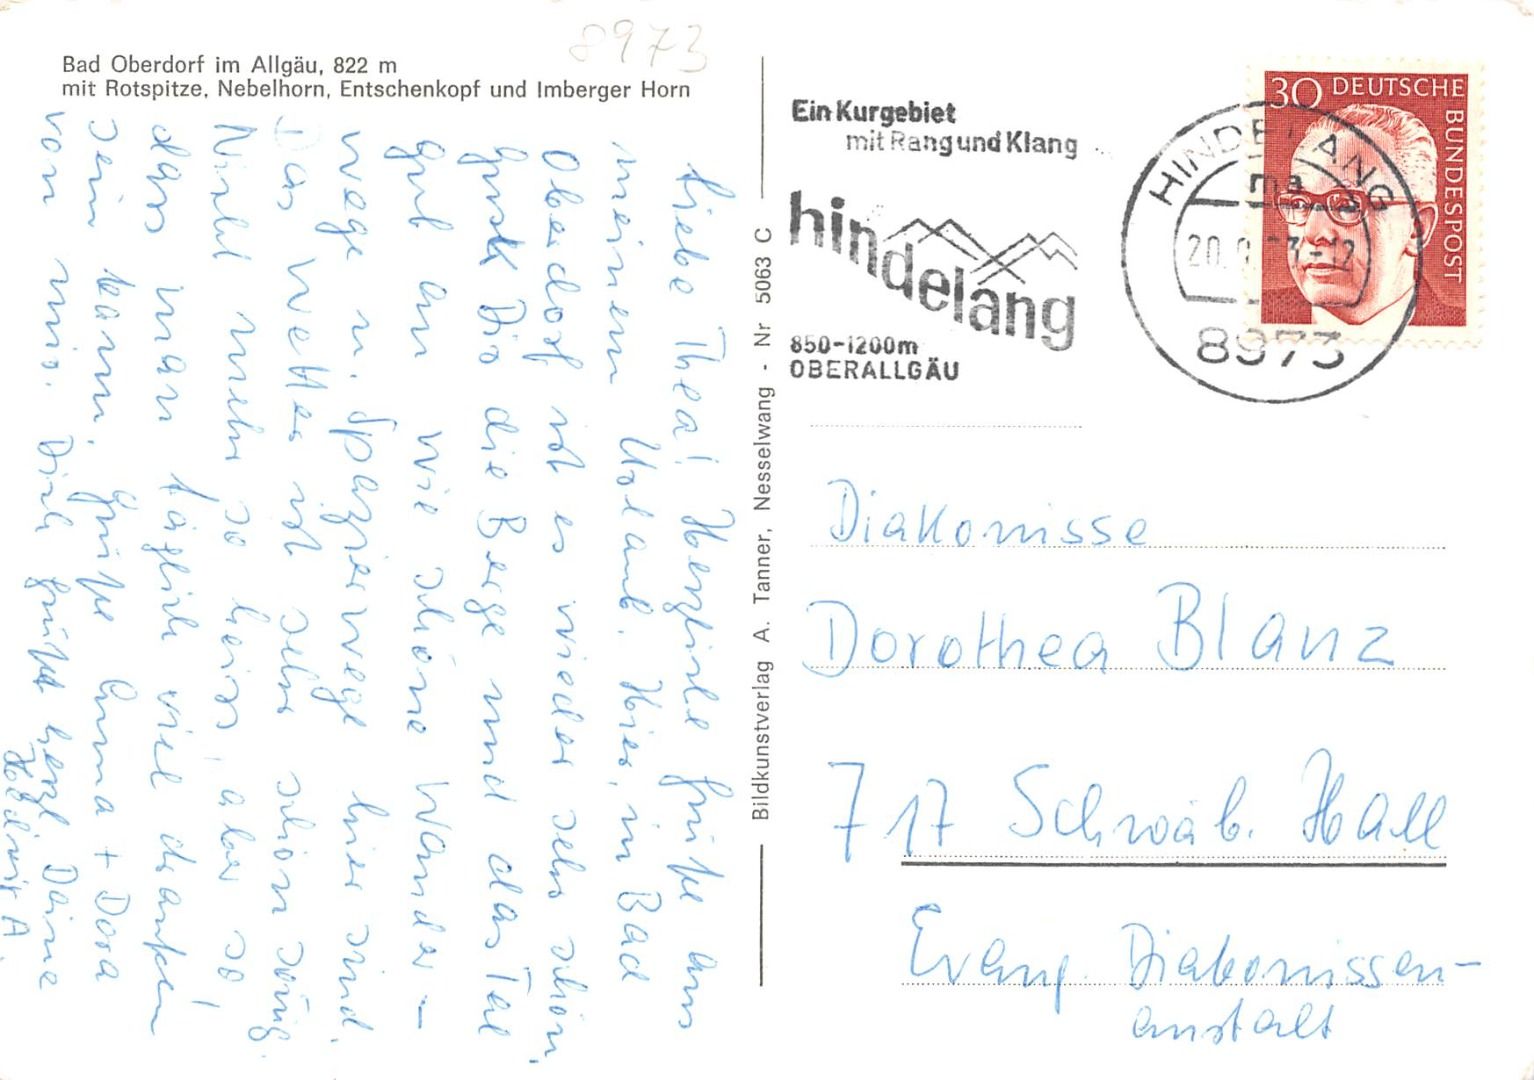 8973
Bad Oberdorf im Allgäu, 822 m
mit Rotspitze, Nebelhorn, Entschenkopf und Imberger Horn
Liebe Thea! Herzliche Grüße aus
meinem Urlaub. Hier, in Bad
Oberdorf ist es wieder sehr schön,
die Berge und das Tal
gut an wie schöne Wander-
wege u. Spazierwege hier sind.
Das Wetter ist sehr schön sonnig.
Nicht mehr so heiss, aber so,
dass man täglich viel draußen
sein kann. Grüße Anna + Dora
von mir. Dich grüßt herzl. Deine
A.
Bildkunstverlag A. Tanner, Nesselwang - Nr 5063 C
Ein Kurgebiet
mit Rang und Klang
hindelang
850-1200m
OBERALLGÄU
30 DEUTSCHE
BUNDESPOST
HINDELANG
ma
20. 73-12
8973
Diakonisse
Dorothea Blanz
717 Schwäb. Hall
Evang. Diakonissen-
anstalt